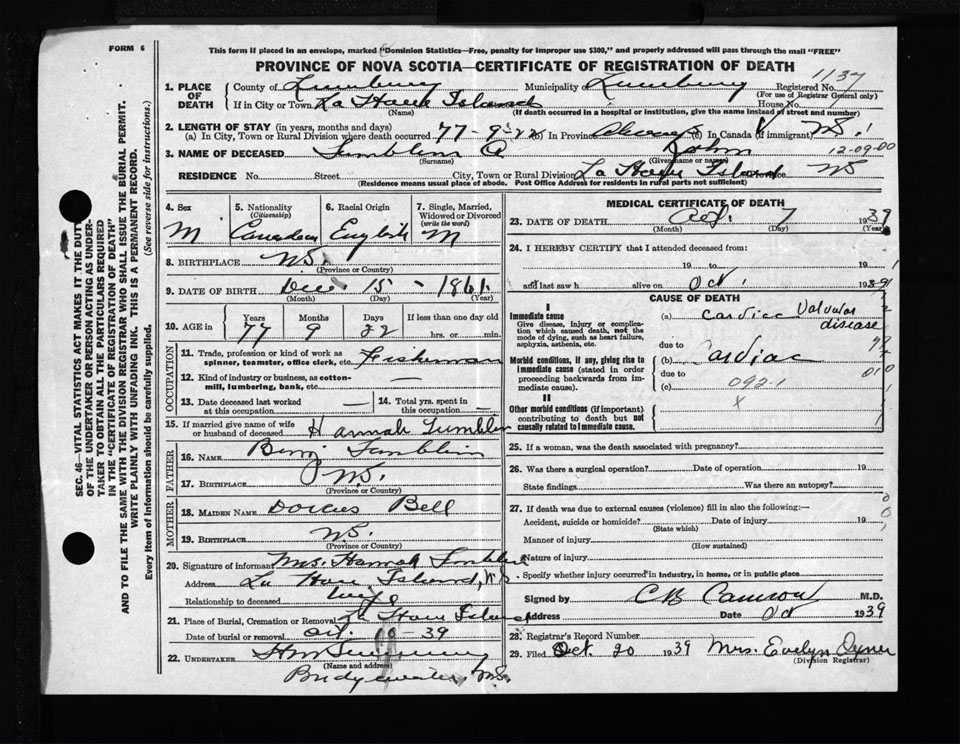 FORM 6
This form if placed in an envelope, marked "Dominion Statistics—Free, penalty for improper use $300," and properly addressed will pass through the mail "FREE"
PROVINCE OF NOVA SCOTIA—CERTIFICATE OF REGISTRATION OF DEATH
SEC. 46—VITAL STATISTICS ACT MAKES IT THE DUTY
OF THE UNDERTAKER OR PERSON ACTING AS UNDER-
TAKER TO OBTAIN ALL THE PARTICULARS REQUIRED
IN THE "CERTIFICATE OF REGISTRATION OF DEATH"
AND TO FILE THE SAME WITH THE DIVISION REGISTRAR WHO SHALL ISSUE THE BURIAL PERMIT.
WRITE PLAINLY WITH UNFADING INK. THIS IS A PERMANENT RECORD.
Every item of information should be carefully supplied. (See reverse side for instructions.)
1. PLACE OF DEATH County of Lunenburg Municipality of Lunenburg Registered No. 1137
(For use of Registrar General only)
If in City or Town La Have Island House No.
(Name) (If death occurred in a hospital or institution, give the name instead of street and number)
2. LENGTH OF STAY (in years, months and days)
(a) In City, Town or Rural Division where death occurred 77-9-22 (b) In Province (c) In Canada (if immigrant) N.S.
12-09-00
3. NAME OF DECEASED John
(Surname) (Given name or names)
RESIDENCE No. Street City, Town or Rural Division La Have Island Province NS
(Residence means usual place of abode. Post Office Address for residents in rural parts not sufficient)
4. Sex M
5. Nationality (Citizenship) Canadian
6. Racial Origin English
7. Single, Married, Widowed or Divorced (write the word) M
8. BIRTHPLACE N.S.
(Province or Country)
9. DATE OF BIRTH Dec 15 - 1861
(Month) (Day) (Year)
10. AGE in Years 77 Months 9 Days 22 If less than one day old hrs. or min.
OCCUPATION
11. Trade, profession or kind of work as spinner, teamster, office clerk, etc. Fisherman
12. Kind of industry or business, as cotton-mill, lumbering, bank, etc. —
13. Date deceased last worked at this occupation — 14. Total yrs. spent in this occupation —
15. If married give name of wife or husband of deceased Hannah
FATHER
16. NAME Benj
17. BIRTHPLACE N.S.
(Province or Country)
MOTHER
18. MAIDEN NAME Dorcus Bell
19. BIRTHPLACE N.S.
(Province or Country)
20. Signature of informant Mrs. Hannah
Address La Have Island, N.S.
Relationship to deceased wife
21. Place of Burial, Cremation or Removal La Have Island
Date of burial or removal Oct. 10-39
22. UNDERTAKER
(Name and address)
Bridgewater, N.S.
MEDICAL CERTIFICATE OF DEATH
23. DATE OF DEATH Oct. 7 1939
(Month) (Day) (Year)
24. I HEREBY CERTIFY that I attended deceased from:
19 to 19
and last saw h alive on Oct. 1 1939
CAUSE OF DEATH
I
Immediate cause
Give disease, injury or complication which caused death, not the mode of dying, such as heart failure, asphyxia, asthenia, etc.
(a) Cardiac Valvular disease
due to
Morbid conditions, if any, giving rise to immediate cause (stated in order proceeding backwards from immediate cause).
(b) Cardiac
due to
(c) 092-1
II
Other morbid conditions (if important) contributing to death but not causally related to immediate cause. x
25. If a woman, was the death associated with pregnancy?
26. Was there a surgical operation? Date of operation 19
State findings Was there an autopsy?
27. If death was due to external causes (violence) fill in also the following:—
Accident, suicide or homicide? Date of injury 19
(State which)
Manner of injury
(How sustained)
Nature of injury
Specify whether injury occurred in industry, in home, or in public place
Signed by C B Cameron M.D.
Address Date Oct 1939
28. Registrar's Record Number
29. Filed Oct. 20 1939 Mrs. Evelyn
(Division Registrar)